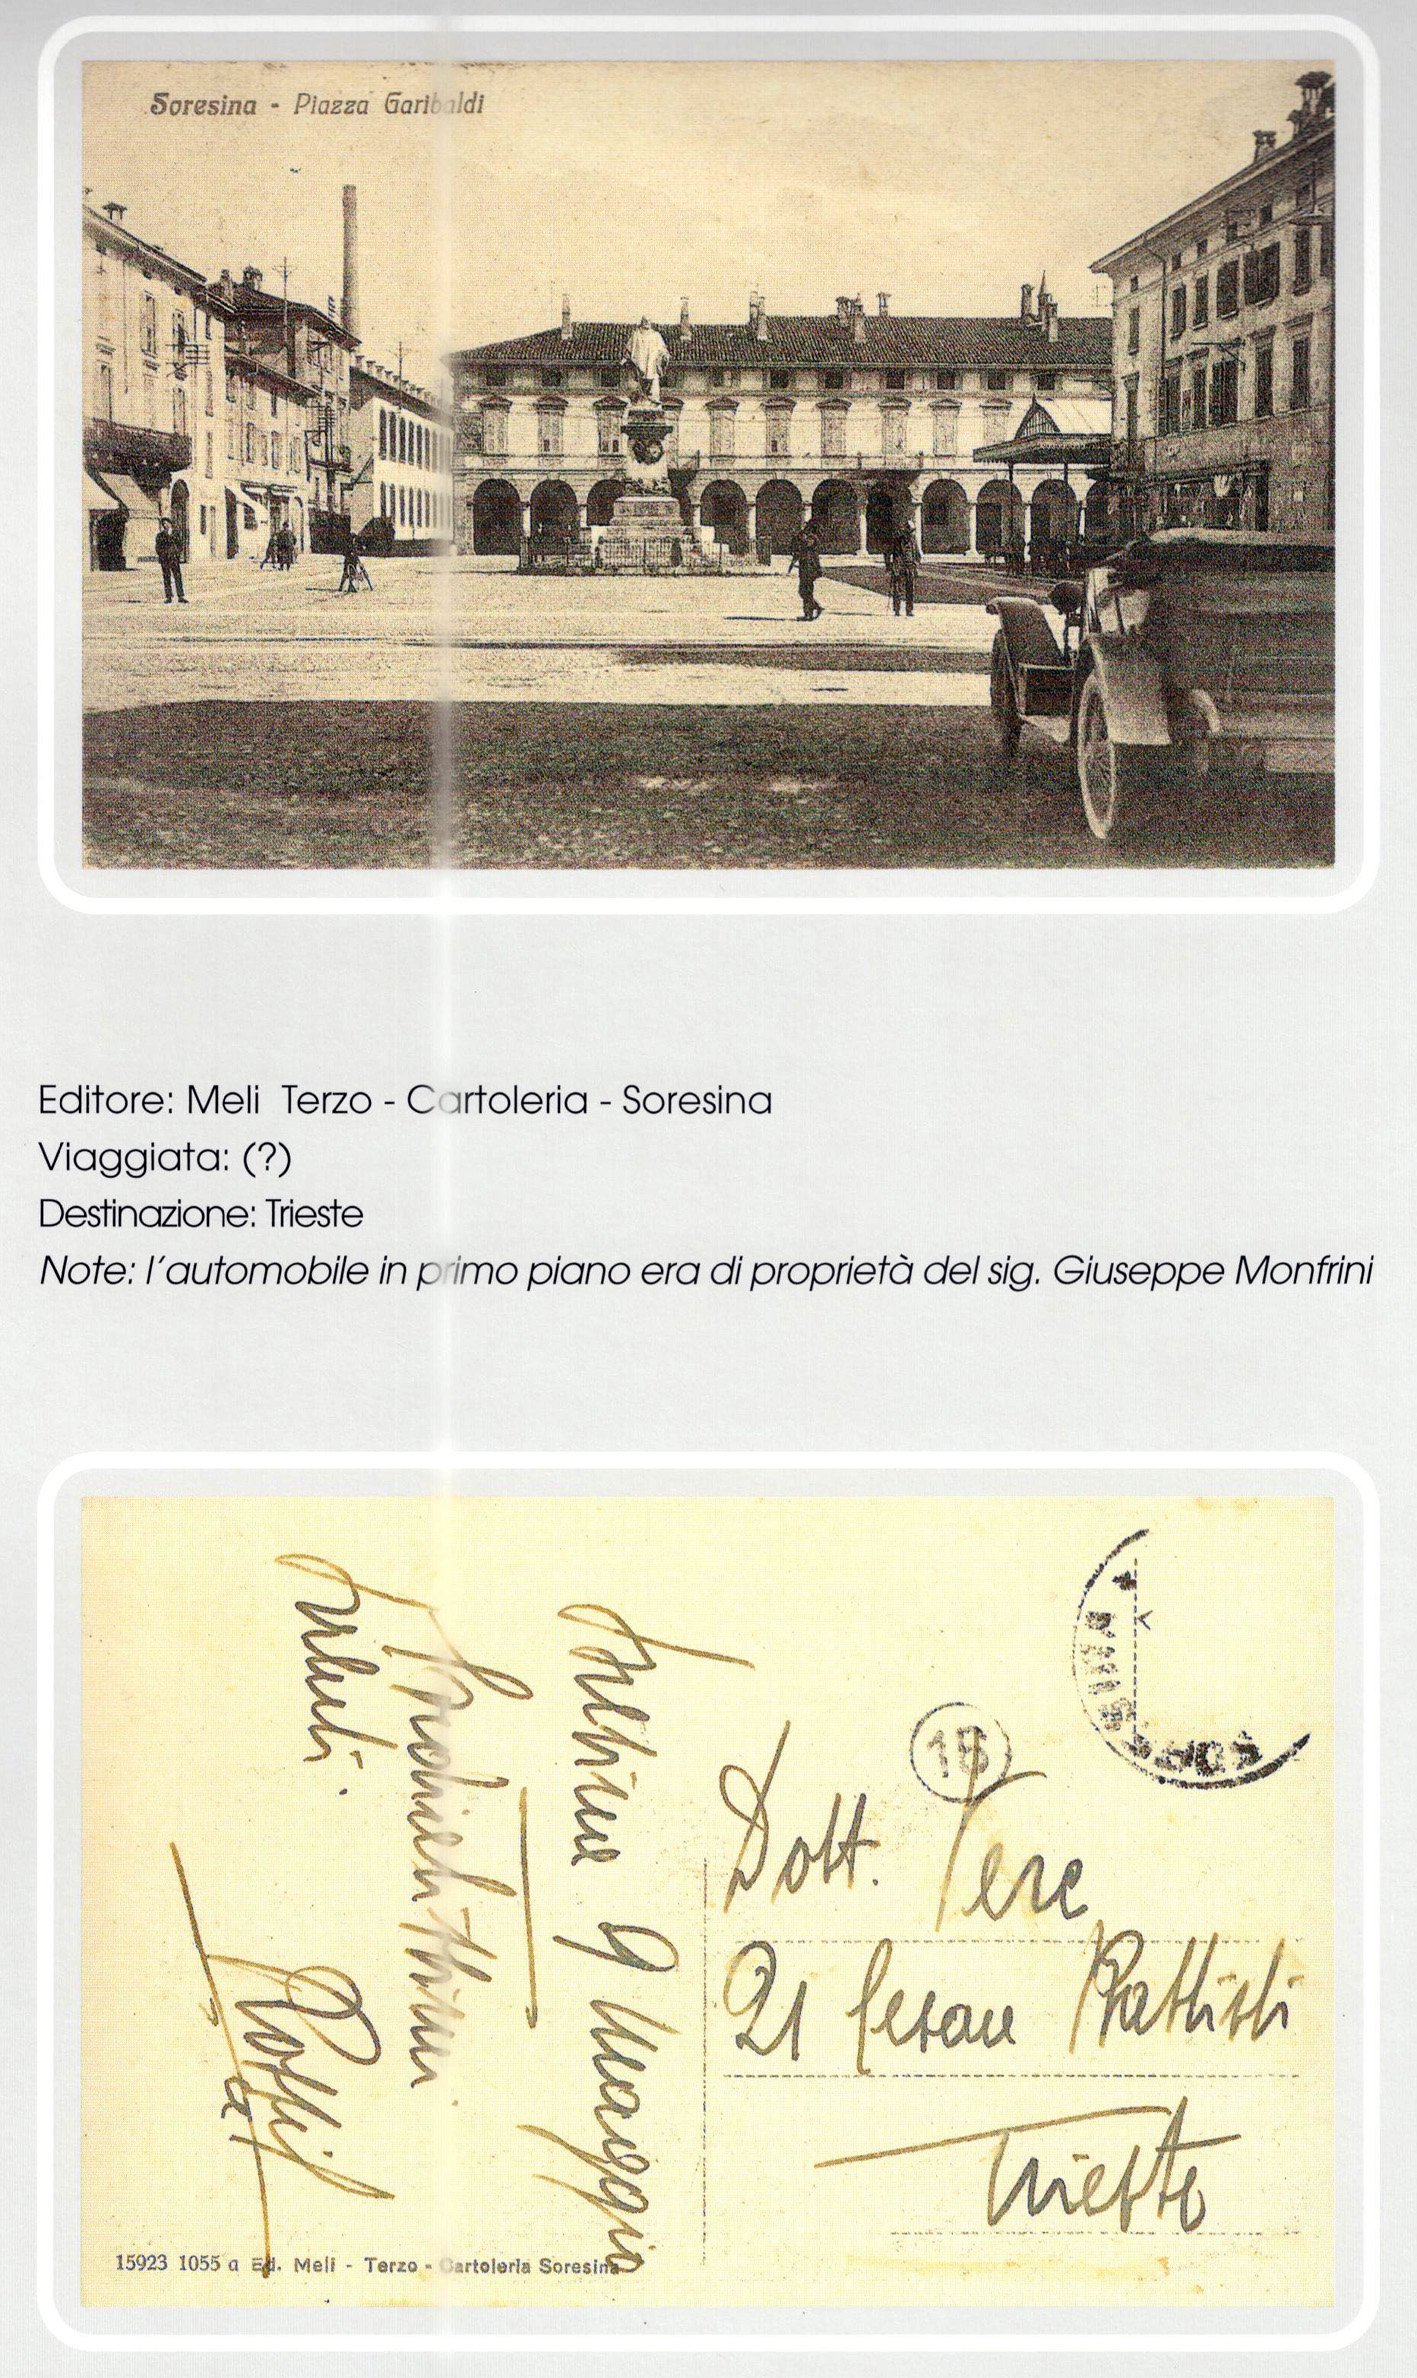 Soresina - Piazza Garibaldi
Editore: Meli Terzo - Cartoleria - Soresina
Viaggiata: (?)
Destinazione: Trieste
Note: l'automobile in primo piano era di proprietà del sig. Giuseppe Monfrini
9 Maggio
Saluti.
18
Dott.
21 Cesare Battisti
Trieste
15923 1055 a Ed. Meli - Terzo - Cartoleria Soresina